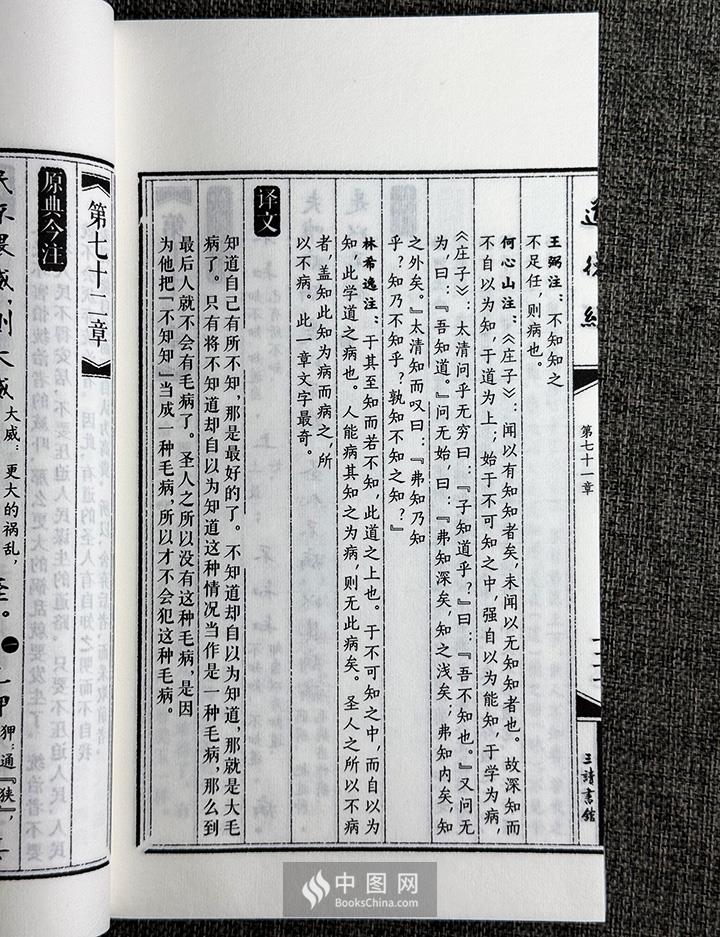 道德經
第七十一章
三請書館
王弼注：不知知之
不足任，则病也。
何心山注：《庄子》：闻以有知知者矣，未闻以无知知者也。故深知而
不自以为知，于道为上；始于不可知之中，强自以为能知，于学为病，
《庄子》：太清问乎无穷曰：『子知道乎？』曰：『吾不知也。』又问无
为，曰：『吾知道。』问无始，曰：『弗知深矣，知之浅矣；弗知内矣，知
之外矣。』太清知而叹曰：『弗知乃知
乎？知乃不知乎？孰知不知之知？』
林希逸注：于其至知而若不知，此道之上也。于不可知之中，而自以为
知，此学道之病也。人能病其知之为病，则无此病矣。圣人之所以不病
者，盖知此知为病而病之，所
以不病。此一章文字最奇。
译文
知道自己有所不知，那是最好的了。不知道却自以为知道，那就是大毛
病了。只有将不知道却自以为知道这种情况当作是一种毛病，那么到
最后人就不会有毛病了。圣人之所以没有这种毛病，是因
为他把「不知知」当成一种毛病，所以才不会犯这种毛病。
第七十二章
原典今注
民不畏威，则大威
大威：更大的祸乱，
至。一
狎：通『狭』，
中图网
BooksChina.com